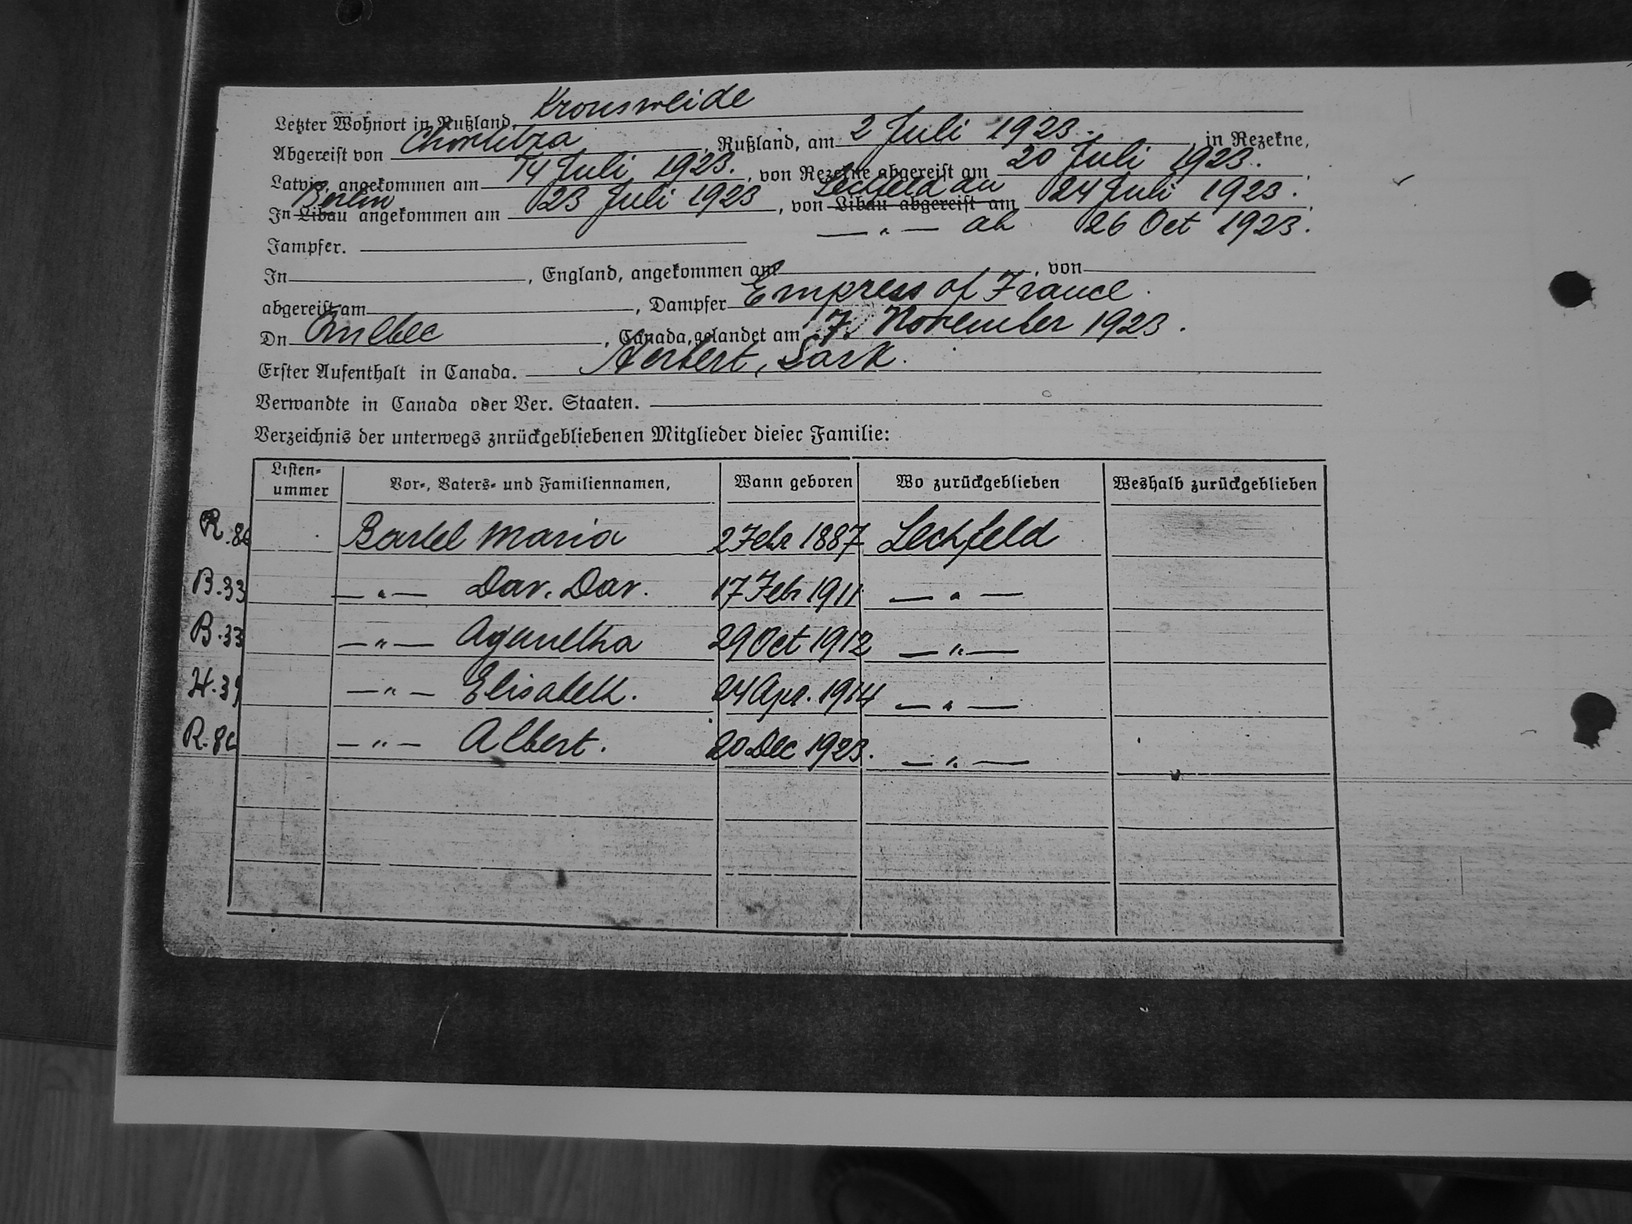 Letzter Wohnort in Rußland. Kronsweide
Abgereist von Chortitza, Rußland, am 2 Juli 1923. in Rezekne,
Latvia, angekommen am 14 Juli 1923., von Rezekne abgereist am 20 Juli 1923.
In Libau Berlin angekommen am 23 Juli 1923, von Libau abgereist am Lechfeld an 24 Juli 1923.
— " — ab 26 Oct 1923.
Jampfer.
In, England, angekommen am, von
abgereist am, Dampfer Empress of France.
Dn Quebec, Canada, gelandet am 7. November 1923.
Erster Aufenthalt in Canada. Herbert, Sask.
Verwandte in Canada oder Ver. Staaten.
Verzeichnis der unterwegs znrückgebliebenen Mitglieder dieser Familie:
Listen-ummer Vor-, Vaters- und Familiennamen, Wann geboren Wo zurückgeblieben Weshalb zurückgeblieben
R.86 Bartel Maria 2 Febr 1887 Lechfeld
B.33 — " — Dav. Dav. 17 Feb 1911 — " —
B.33 — " — Aganetha 29 Oct 1912 — " —
H.39 — " — Elisabeth. 24 Apr. 1914 — " —
R.86 — " — Albert. 20 Dec 1923. — " —